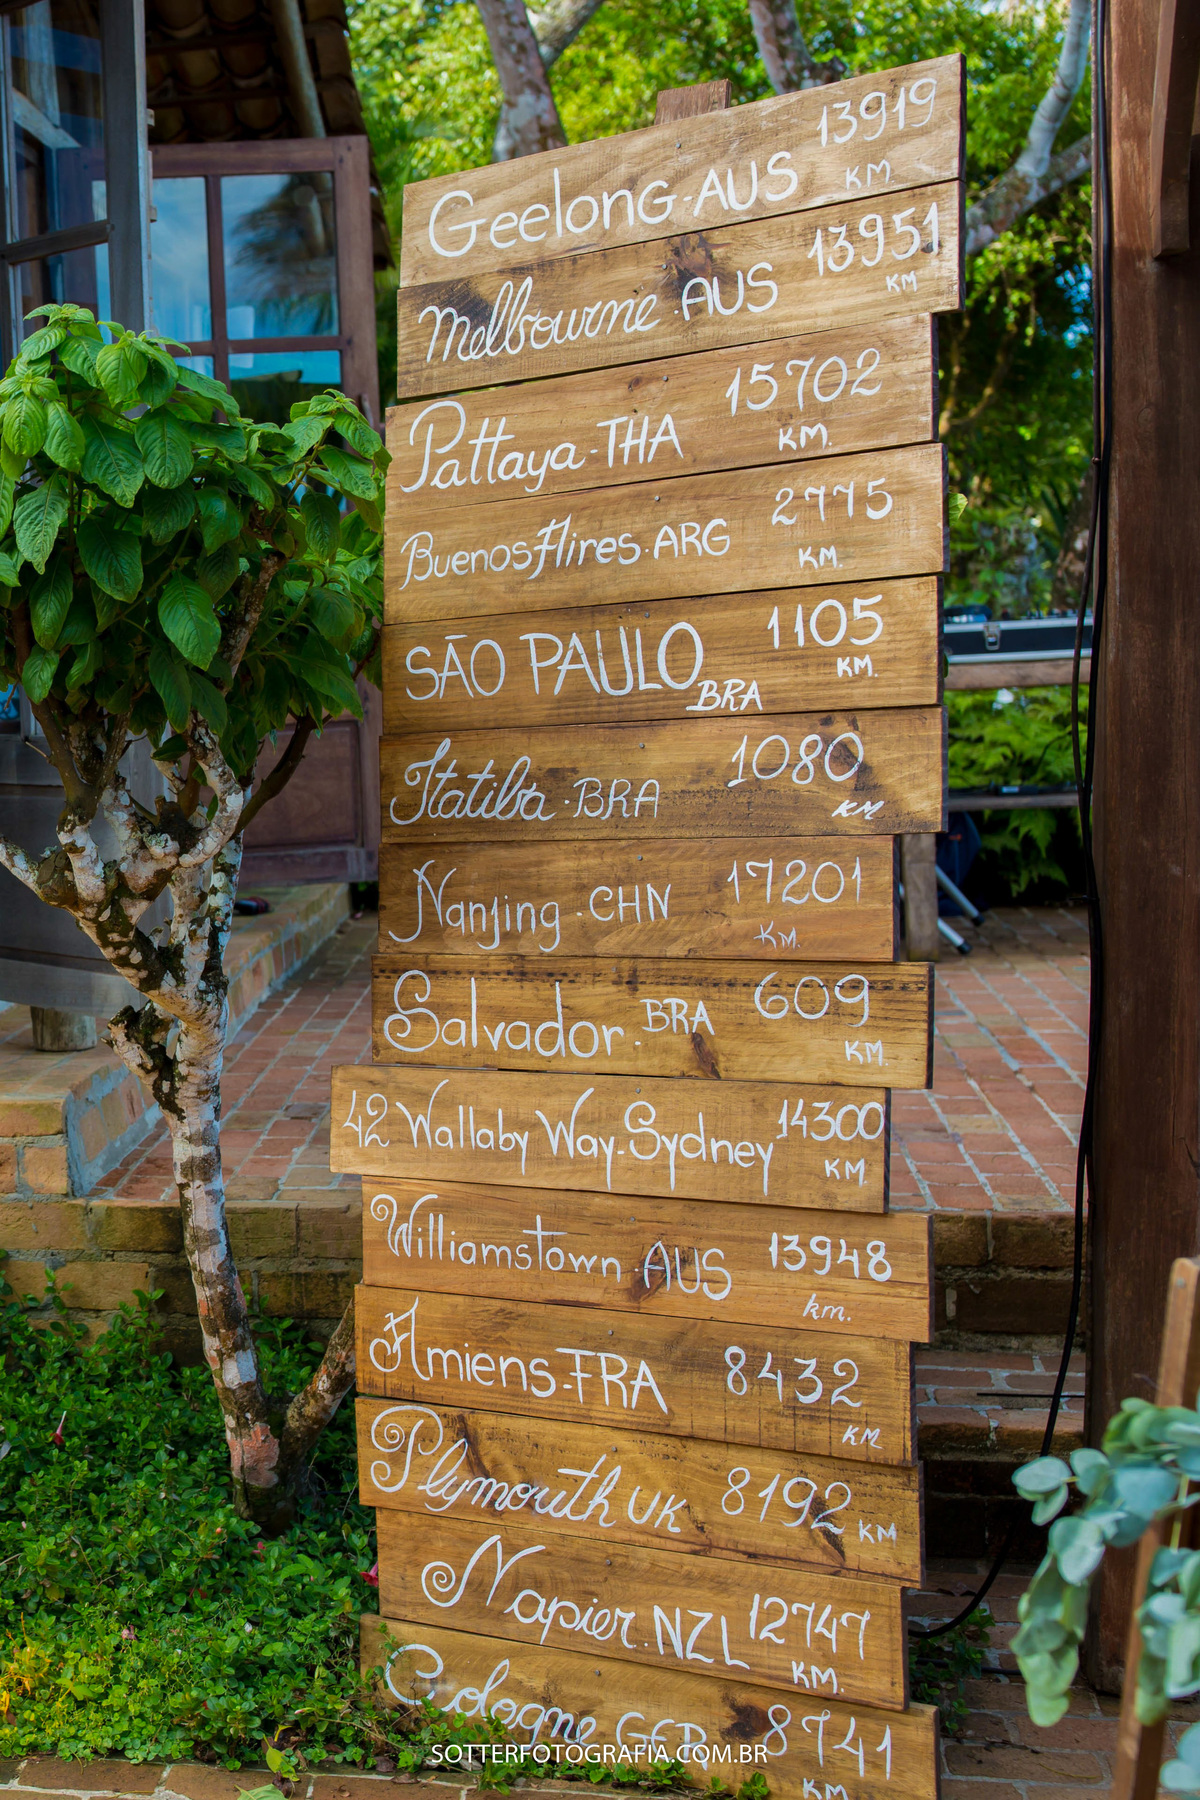 Geelong-AUS 13919 KM.
Melbourne.AUS 13951 KM
Pattaya-THA 15702 KM.
Buenos Aires.ARG 2775 KM.
SÃO PAULO BRA 1105 KM.
Itatiba.BRA 1080 KM
Nanjing.CHN 17201 KM.
Salvador.BRA 609 KM.
42 Wallaby Way-Sydney 14300 KM.
Williamstown.AUS 13948 km.
Amiens-FRA 8432 KM
Plymouth UK 8192 KM
Napier.NZL 12747 KM.
Cologne GER 8741 KM
SOTTERFOTOGRAFIA.COM.BR